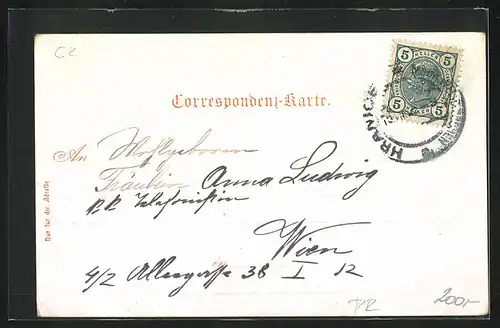 CZ
5 HELLER 5
5 HELLER 5
HRANICE
Correspondenz-Karte.
An Wohlgeboren
Fräulein Anna Ludwig
k.k. Telefonistin
Wien
4/2 Alleegasse 38 I 12
Nur für die Adresse
200,-